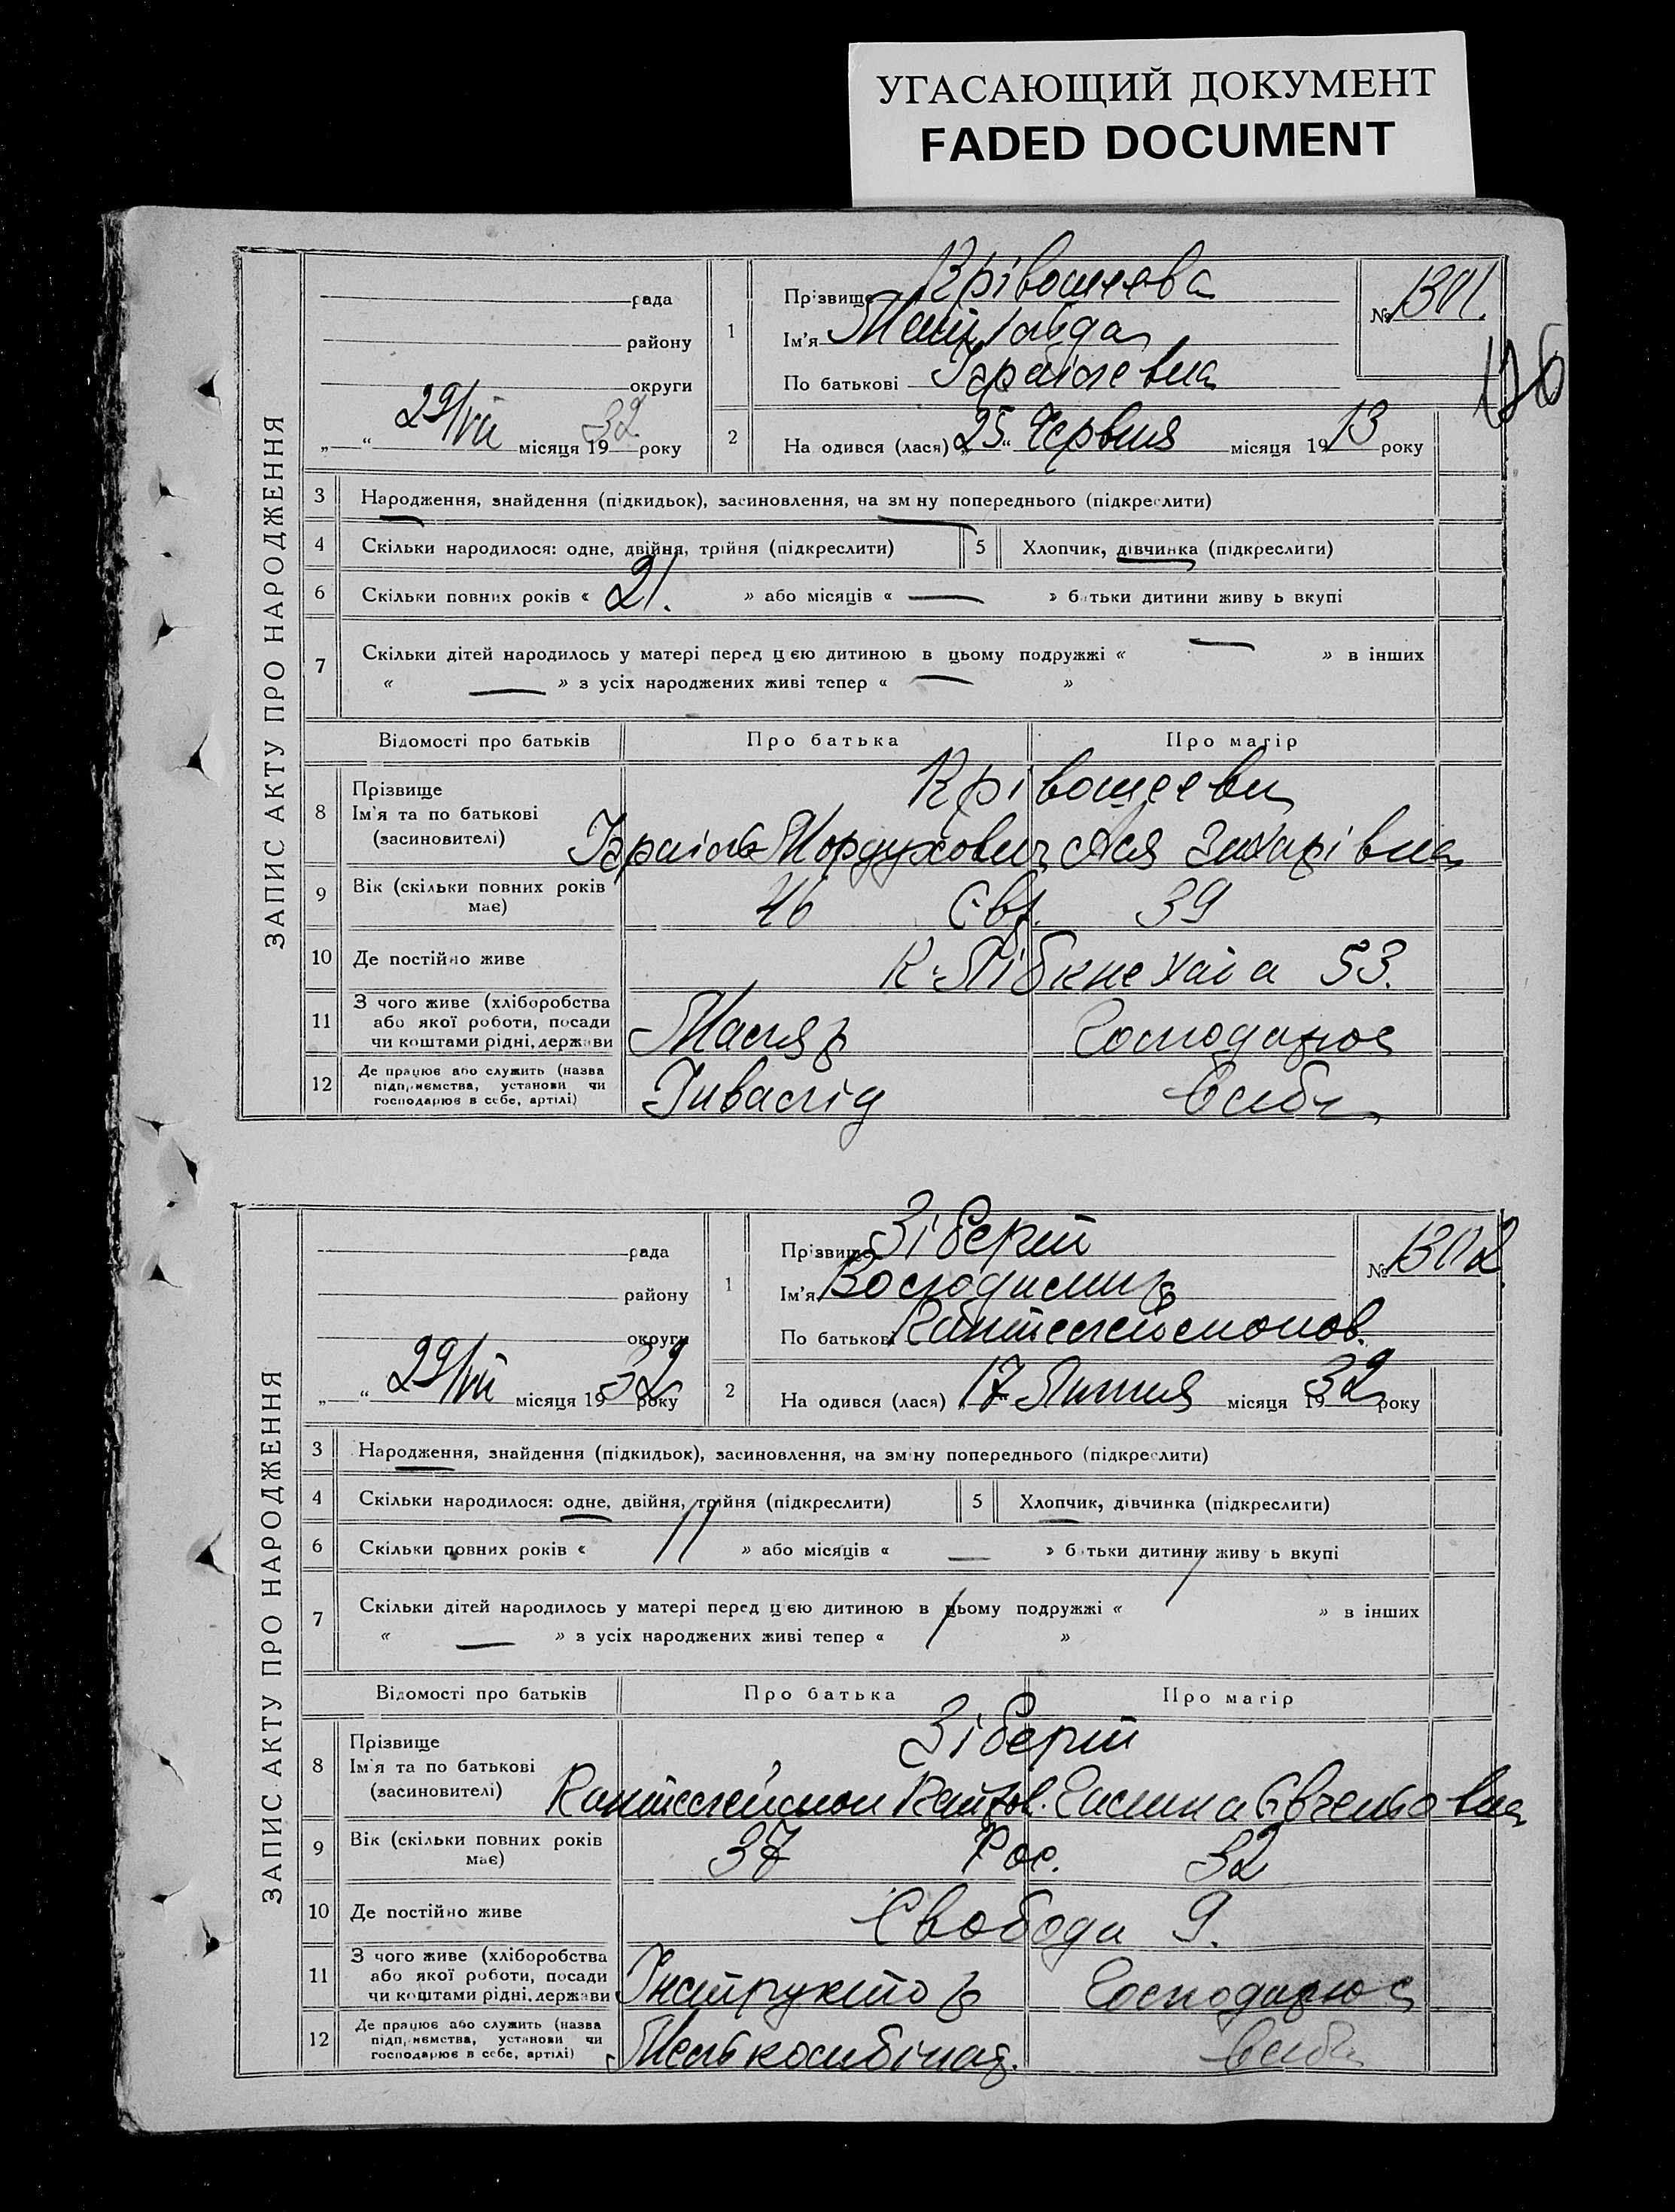 УГАСАЮЩИЙ ДОКУМЕНТ
FADED DOCUMENT
ЗАПИС АКТУ ПРО НАРОДЖЕННЯ
рада
району
округи
„ “ 29/VII місяця 1932 року
1
Прізвище Крівошеєва
Ім'я
По батькові Ізраїлевна
№ 1301.
126
2
На одився (лася) „25“ Червня місяця 1913 року
3 Народження, знайдення (підкидьок), засиновлення, на зміну попереднього (підкреслити)
4 Скільки народилося: одне, двійня, трійня (підкреслити) 5 Хлопчик, дівчинка (підкреслити)
6 Скільки повних років « 21. » або місяців « — » батьки дитини живуть вкупі
7 Скільки дітей народилось у матері перед цією дитиною в цьому подружжі « — » в інших
« — » з усіх народжених живі тепер « — »
Відомості про батьків Про батька Про матір
8 Прізвище Крівошеєви
Ім'я та по батькові
(засиновителі) Ізраїль Мордухович Ася Захарівна
9 Вік (скільки повних років має) 46 Євр. 39
10 Де постійно живе К. Лібкнехата 53.
11 З чого живе (хліборобства
або якої роботи, посади
чи коштами рідні, держави Маляр Господарює
12 Де працює або служить (назва
підприємства, установи чи
господарює в себе, артілі) Інваслід всебе
ЗАПИС АКТУ ПРО НАРОДЖЕННЯ
рада
району
округи
„ “ 29/VII місяця 1932 року
1
Прізвище Зіберт
Ім'я Володимир
По батькові
№ 1302.
2
На одився (лася) „17 Липня місяця 1932 року
3 Народження, знайдення (підкидьок), засиновлення, на зміну попереднього (підкреслити)
4 Скільки народилося: одне, двійня, трійня (підкреслити) 5 Хлопчик, дівчинка (підкреслити)
6 Скільки повних років « 11 » або місяців « — » батьки дитини живуть вкупі
7 Скільки дітей народилось у матері перед цією дитиною в цьому подружжі « / » в інших
« — » з усіх народжених живі тепер « / »
Відомості про батьків Про батька Про матір
8 Прізвище Зіберт
Ім'я та по батькові
(засиновителі)
9 Вік (скільки повних років має) 37 Рос. 32
10 Де постійно живе Свобода 9.
11 З чого живе (хліборобства
або якої роботи, посади
чи коштами рідні, держави Інструктор Господарює
12 Де працює або служить (назва
підприємства, установи чи
господарює в себе, артілі) Мелькомбінат. всебе